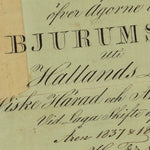 öfver Ägorne
BJURUMS
uti
Hallands
Wiske Härad och
Vid Laga Skifte
Åren 1837 & 18